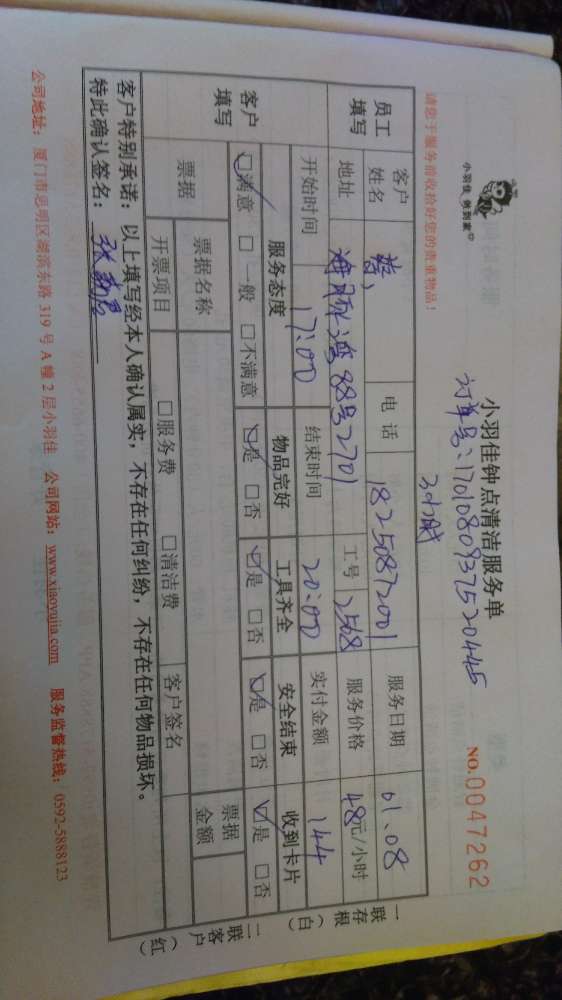 小羽佳 朝到家
请您于服务前收拾好您的贵重物品！
小羽佳钟点清洁服务单
订单号：1701080937520445
3小时
NO.0047262
员工填写 客户姓名 电话 18250872001 服务日期 01.08
地址 88号2701 工号 2568 服务价格 48元/小时
开始时间 17:00 结束时间 20:00 实付金额 144
客户填写 服务态度 物品完好 工具齐全 安全结束 收到卡片
☑满意 □一般 □不满意 ☑是 □否 ☑是 □否 ☑是 □否 ☑是 □否
票据 票据名称 票据金额
开票项目 □服务费 □清洁费 客户签名
一联存根（白） 二联客户（红）
客户特别承诺：以上填写经本人确认属实，不存在任何纠纷，不存在任何物品损坏。
特此确认签名：
公司地址：厦门市思明区湖滨东路319号A幢2层小羽佳 公司网站：www.xiaoyujia.com 服务监督热线：0592-5888123